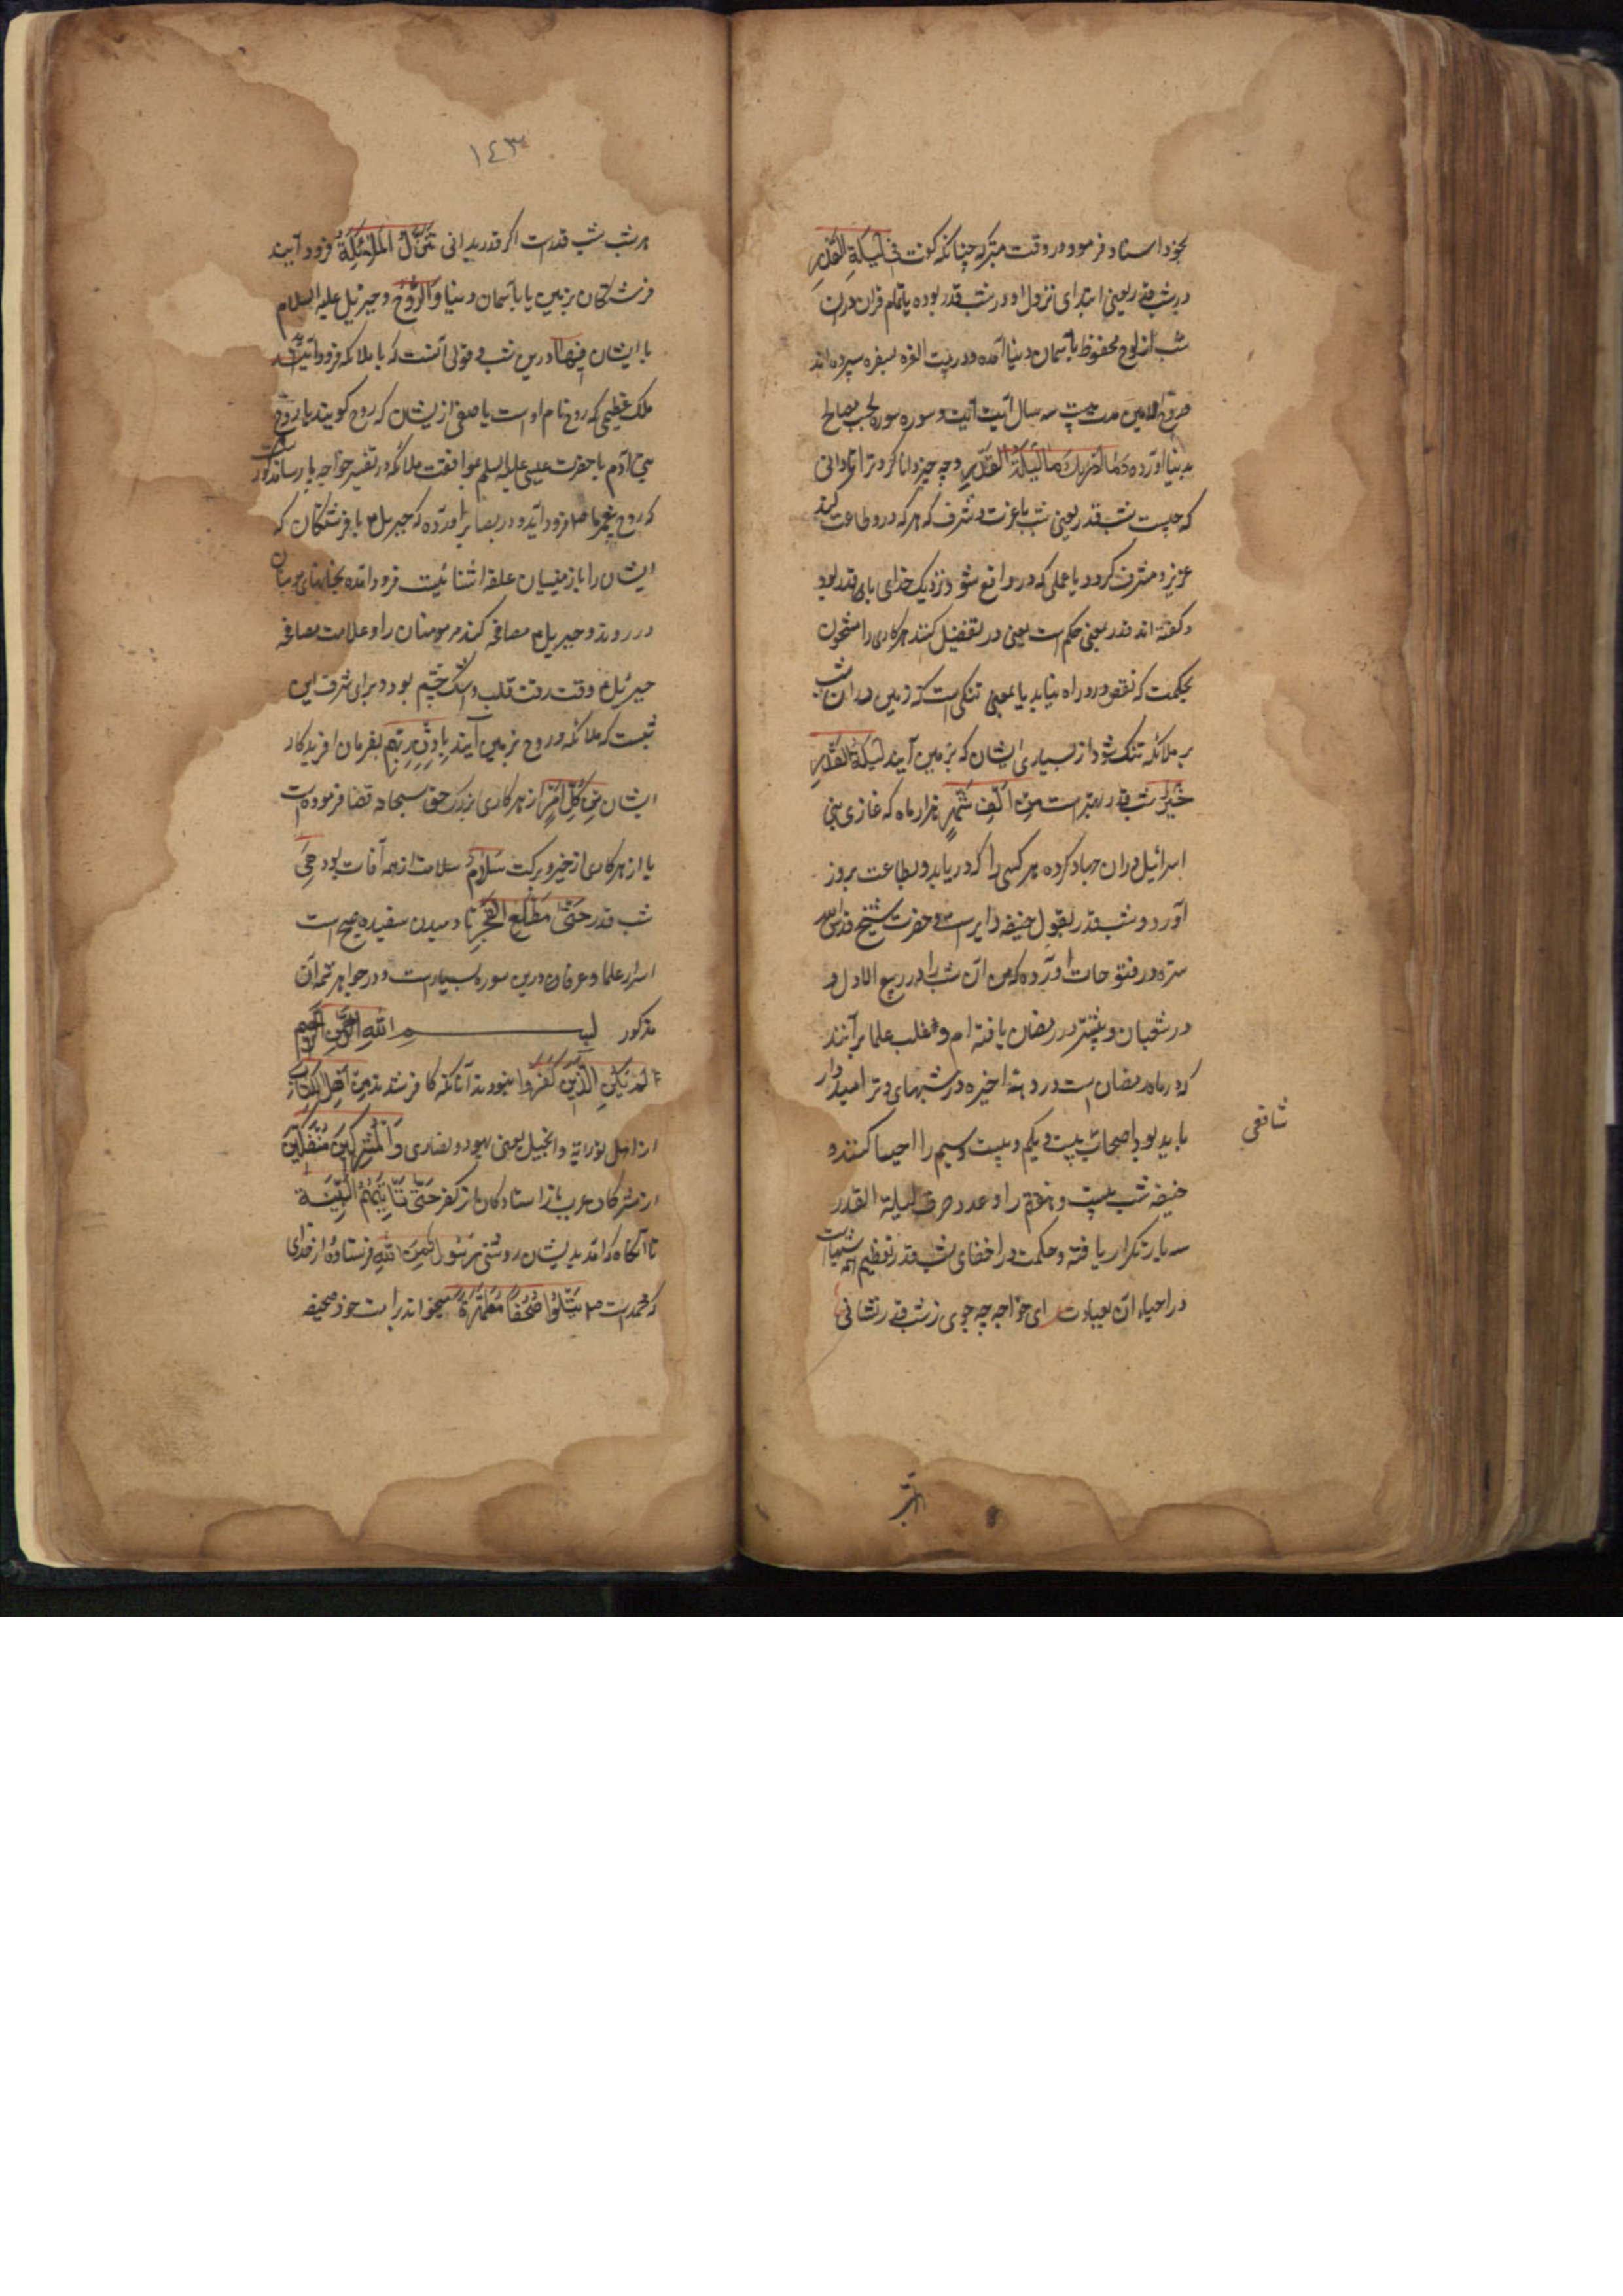 بخود اسناد فرمود در وقت متبرکه چنانکه گفت فِی لَیلَةِ القَدرِ
در شب قدر یعنی ابتدای نزول او در شب قدر بوده یا تمام قران دران
شب از لوح محفوظ بآسمان دنیا آمده و در بیت العزه بسفره سپرده اند
و روح الامین مدت بیست سه سال آیت آیت و سوره سوره بحسب مصالح
بدنیا آورده وَمَا اَدریٰكَ مَا لَیلَةُ القَدرِ و چه چیز دانا کرد ترا تا دانی
که چیست شب قدر یعنی شب با عزت و شرف که هر که درو طاعت کند
عزیز و مشرف کردد یا عملی که درو واقع شود نزدیک خدای با قدر بود
و گفته اند قدر بمعنی حکم است یعنی در تفضیل کنند هر کاری را مشحون
بحکمت که نقص درو راه نیابد یا بمعنی تنکی است که زمین دران شب
بر ملائکه تنک شود از بسیاری ایشان که بزمین آیند لَیلَةُ القَدرِ
خَیرٌ شب قدر بهتر است مِن اَلفِ شَهرٍ از هزار ماه که غازی بنی
اسرائیل دران جهاد کرده هر کسی را که دریابد و بطاعت بروز
آورد و شب قدر بقول حنیفه دایر است و حضرت شیخ قدس الله
سره در فتوحات آورده که من آن شب را در ربیع الاول و
در شعبان و بیشتر در رمضان یافته ام و اغلب علما برآنند
که در ماه رمضان است در دهه اخیره در شبهای وتر امیدوار
باید بود اصحاب بیست و یکم و بیست و سیم را احیا کننده
شافعی
حنیفه شب بیست و هفتم را و عدد حرف لیلة القدر
سه بار تکرار یافته و حکمت در اخفای شب قدر تعظیم همه شبهاست
در احیاء آن بعبادت ای خواجه چه جوی ز شب قدر نشانی
هر
١٤٣
هر شب شب قدرست اکر قدر بدانی تَنَزَّلُ المَلٰئِکَةُ فرود آیند
فرشتکان بزمین یا بآسمان دنیا وَالرُّوحُ و جبرئیل علیه السلام
با ایشان فِیهَا درین شب و قولی آنست که با ملائکه فرود آید
ملک عظیمی که روح نام اوست یا صفی ازیشان که روح کویند یا روح
بنی آدم یا حضرت عیسی علیه السلم بموافقت ملائکه و در تفسیر خواجه پارسا مذکور است
که روح پیغمبر ما صلم فرود آید و در بصایر آورده که جبریل م با فرشتکان که
ایشان را با زمینیان علقه آشنائیست فرود آمده بخانهای مومنان
در روند و جبریل م مصافحه کند مر مومنان را و علامت مصافحه
جبرئیل م وقت رقت قلب و اشک چشم بود و برای شرف این
شبست که ملائکه و روح بزمین آیند بِاِذنِ رَبِّهِم بفرمان افریدکار
ایشان مِن کُلِّ اَمرٍ از هر کاری بزرک حق سبحانه قضا فرموده است
یا از هر کاری از خیر و برکت سَلَامٌ سلامت از همه آفات بود هِیَ
شب قدر حَتّٰی مَطلَعِ الفَجرِ تا دمیدن سفیده صبح است
اسرار علما و عرفان درین سوره بسیار است و در جواهر تتمه آن
مذکور بسم الله الرحمن الرحیم
لَم یَکُنِ الَّذِینَ کَفَرُوا نبودند آنانکه کافر شدند مِن اَهلِ الکِتَابِ
از اهل توراية و انجیل یعنی یهود و نصاری وَالمُشرِکِینَ مُنفَکِّینَ
از مشرکان عرب باز استادکان از کفر حَتّٰی تَاتِیَهُمُ البَیِّنَة
تا آنکاه که آمد بدیشان روشنی رَسُولٌ مِنَ اللهِ فرستاده از خدای
که محمد است صلم یَتلُوا صُحُفًا مُطَهَّرَةً میخواند بر امت خود صحیفه